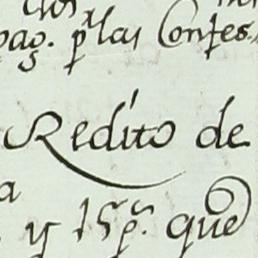 pag.s p.r las Confes
Redíto de
a
y 15 p.s que